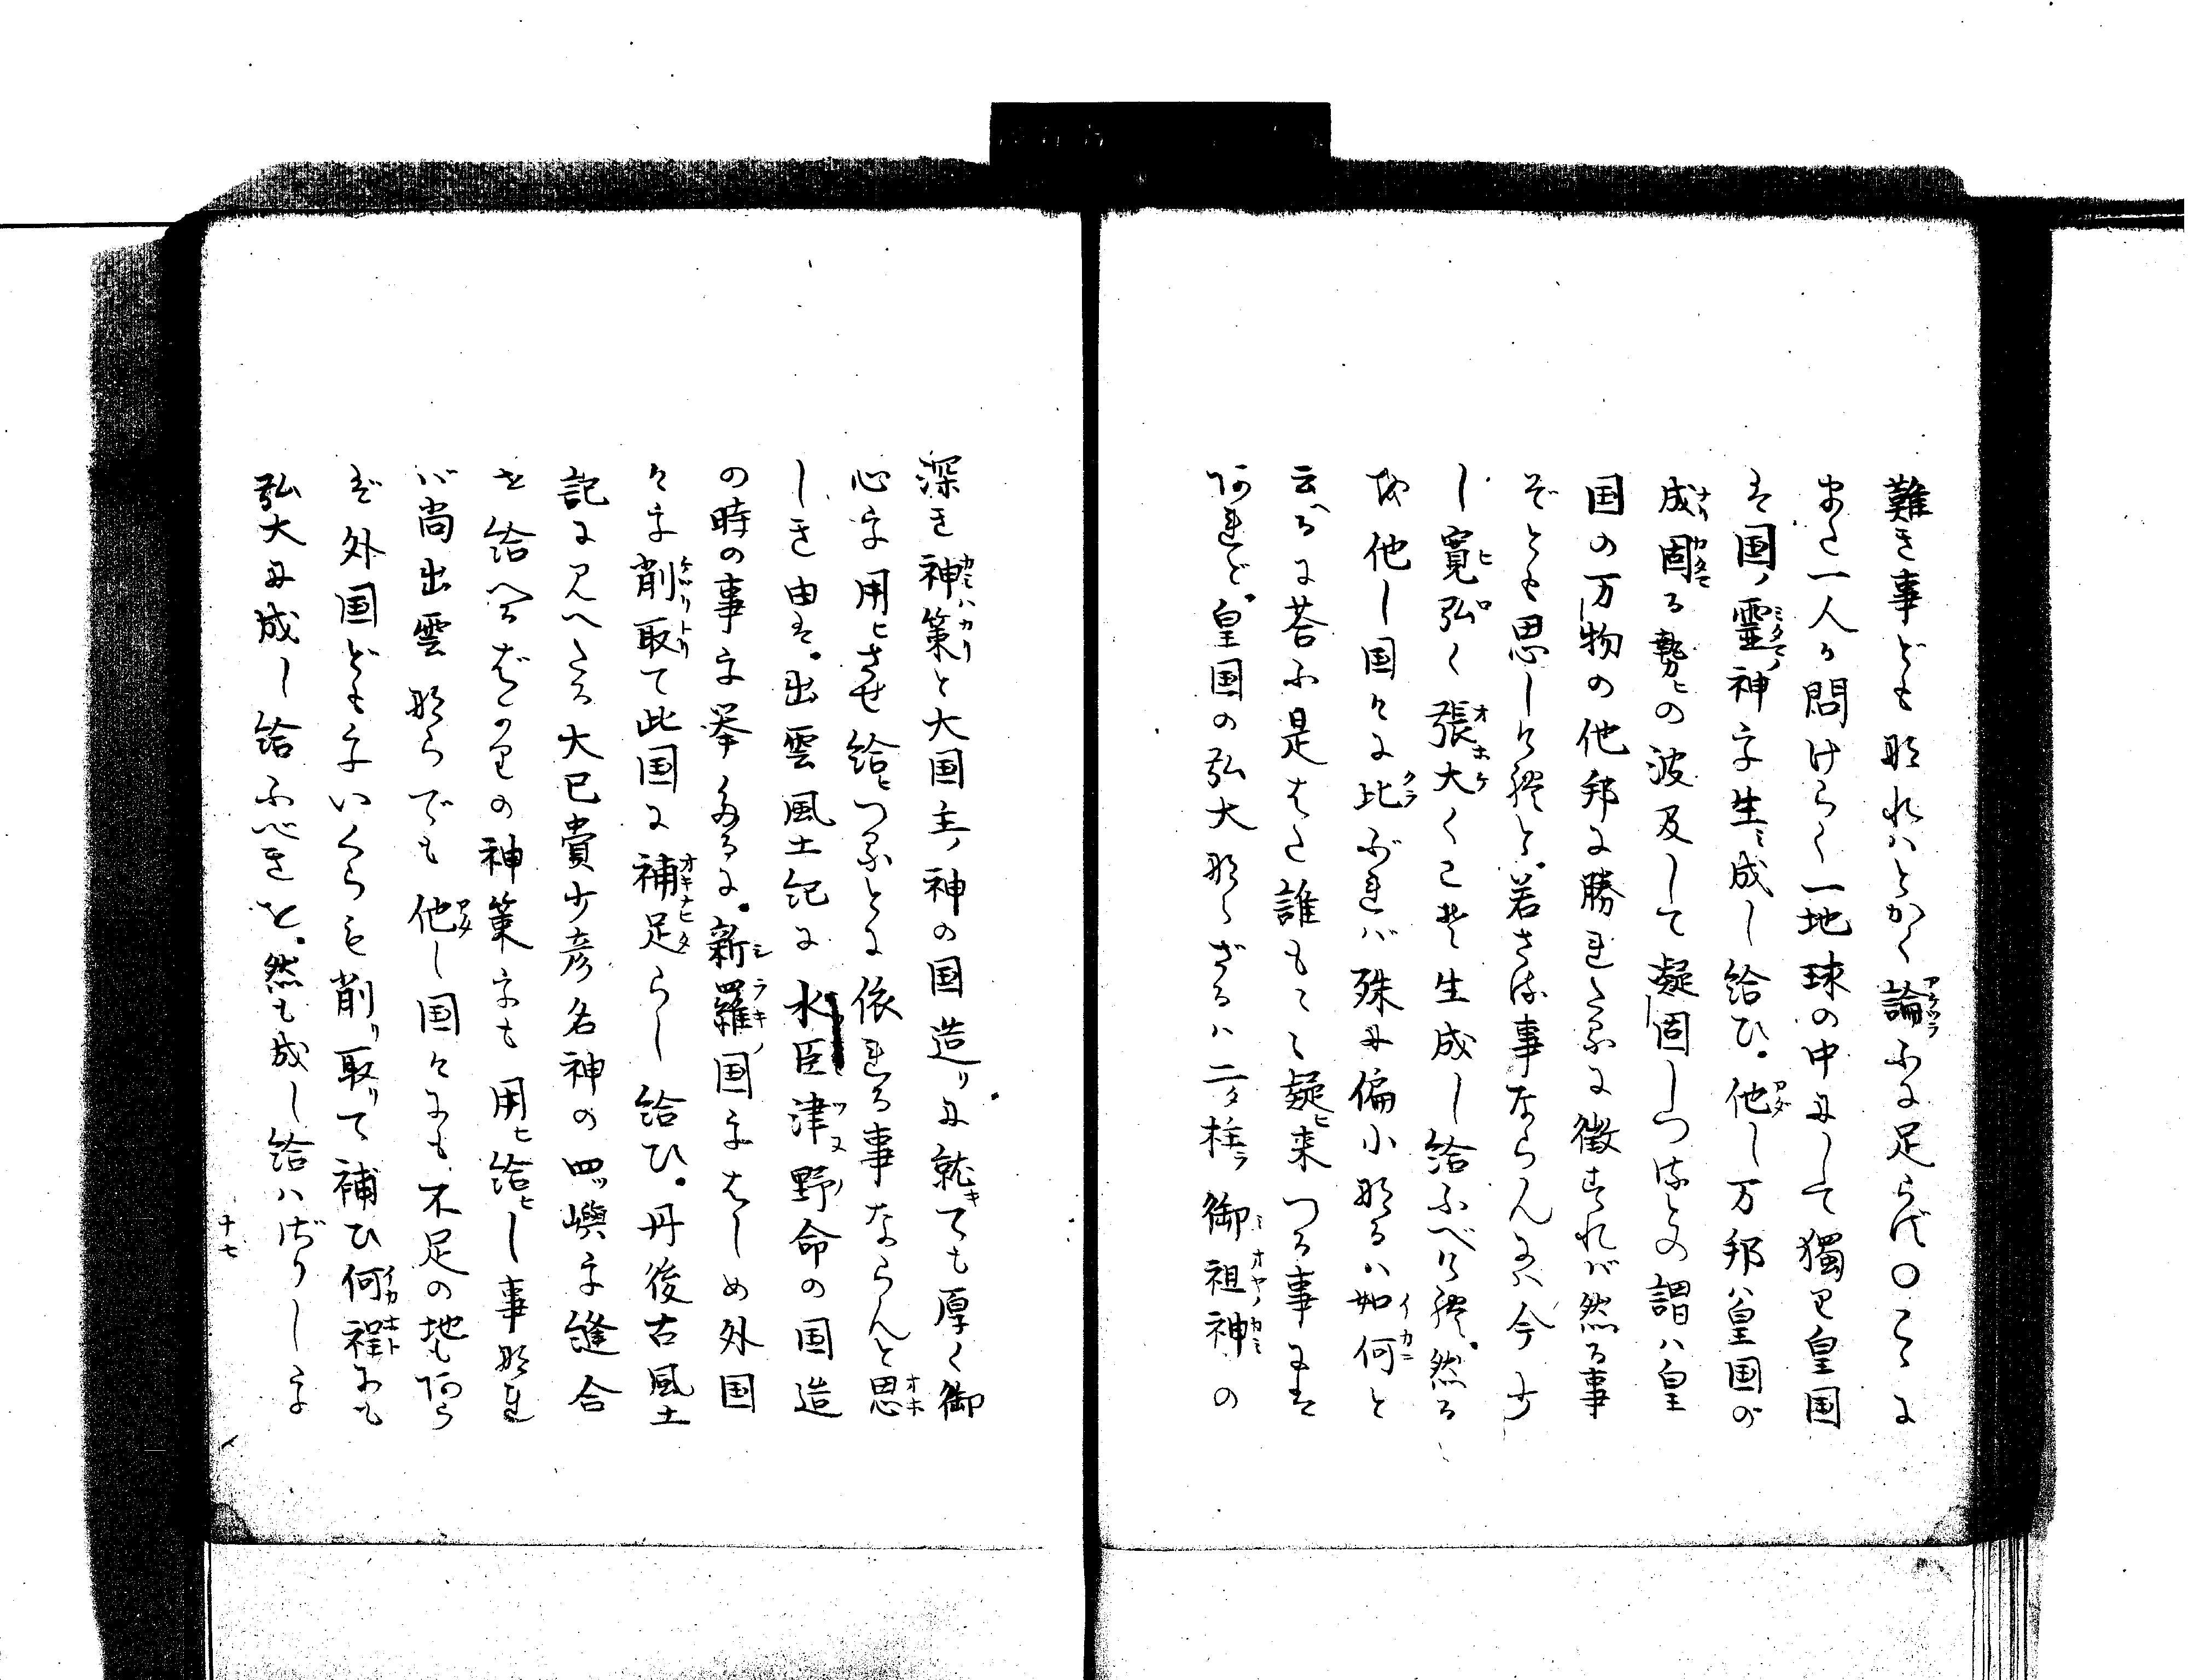 難き事ども那れハとかく論ふに足らず〇こゝに
また一人が問けらく一地球の中にして獨り皇国
は国ノ霊ノ神を生ミ成し給ひ。他し万邦ハ皇国の
成リ固る勢ヒの波及して凝固しつるとの謂ハ皇
国の万物の他邦に勝れたるに徴すれバ然る事
ぞとも思しけれど。若さる事ならんにハ今少
し寛弘く張大くこそ生成し給ふべけれ。然る
を他し国々に比ぶれバ殊に偏小那るハ如何と
云るに荅ふ是はた誰もゝゝ疑ヒ来つる事には
阿れど。皇国の弘大那らざるハ二タ柱ラ御祖神の
深き神策と大国主ノ神の国造リに就キても厚く御
心を用ヒさせ給ヒつるとに依れる事ならんと思
しき由は。出雲風土記に水臣津野命の国造
の時の事を挙たるに。新羅ノ国をはしめ外国
々を削取て此国に補足らし給ひ。丹後古風土
記に見へたる大已貴少彦名神の四ツ嶼を縫合
せ給へるばかりの神策をも用ヒ給ヒし事那れ
バ尚出雲那らでも他し国々にも不足の地も阿ら
ば外国どもをいくらも削リ取リて補ひ何程にも
弘大に成し給ふべきを。然も成し給ハざりしを
十七